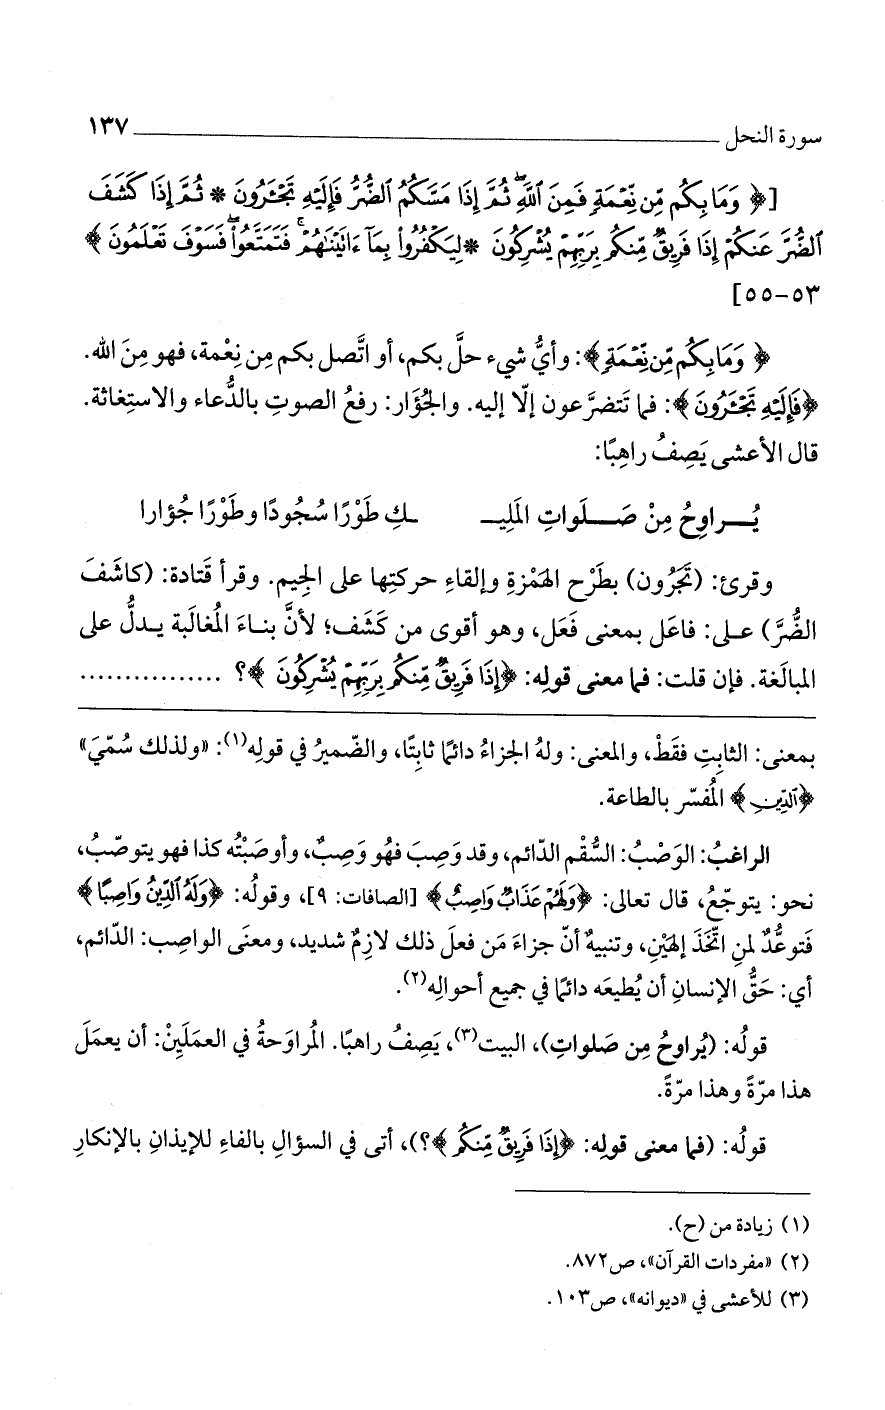 سورة النحل ١٣٧
[﴿ وَمَا بِكُم مِّن نِّعْمَةٍ فَمِنَ ٱللَّهِ ثُمَّ إِذَا مَسَّكُمُ ٱلضُّرُّ فَإِلَيْهِ تَجْـَٔرُونَ * ثُمَّ إِذَا كَشَفَ
ٱلضُّرَّ عَنكُمْ إِذَا فَرِيقٌ مِّنكُم بِرَبِّهِمْ يُشْرِكُونَ *لِيَكْفُرُواْ بِمَآ ءَاتَيْنَٰهُمْ ۚ فَتَمَتَّعُواْ ۖ فَسَوْفَ تَعْلَمُونَ ﴾
٥٣-٥٥]
﴿ وَمَا بِكُم مِّن نِّعْمَةٍ ﴾: وأيُّ شيء حلَّ بكم، أو اتَّصل بكم مِن نِعْمة، فهو مِنَ الله.
﴿فَإِلَيْهِ تَجْـَٔرُونَ ﴾: فما تَتضرَّعون إلّا إليه. والجُؤَار: رفعُ الصوتِ بالدُّعاء والاستِغاثة.
قال الأعشى يَصِفُ راهِبًا:
يُـــراوِحُ مِنْ صَـــلَواتِ المَلِيــ ــكِ طَوْرًا سُجُودًا وطَوْرًا جُؤارا
وقرئ: (تَجَرُون) بطَرْح الهَمْزةِ وإلقاءِ حركتِها على الجِيم. وقرأ قَتادة: (كاشَفَ
الضُّرَّ) على: فاعَل بمعنى فَعَل، وهو أقوى من كَشَف؛ لأنَّ بناءَ المُغالَبة يدلُّ على
المبالَغة. فإن قلت: فما معنى قولِه: ﴿إِذَا فَرِيقٌ مِّنكُم بِرَبِّهِمْ يُشْرِكُونَ ﴾؟ ................
بمعنى: الثابتِ فقَطْ، والمعنى: ولهُ الجزاءُ دائمًا ثابتًا، والضّميرُ في قولِه(١): «ولذلك سُمّيَ»
﴿ٱلدِّينِ ﴾ المُفسّر بالطاعة.
الراغبُ: الوَصْبُ: السُّقْم الدّائم، وقد وَصِبَ فهُو وَصِبٌ، وأوصَبْتُه كذا فهو يتوصّبُ،
نحو: يتوجّعُ، قال تعالى: ﴿وَلَهُمْ عَذَابٌ وَاصِبٌ ﴾ [الصافات: ٩]، وقولُه: ﴿وَلَهُ ٱلدِّينُ وَاصِبًا ﴾
فَتوعُّدٌ لمنِ اتّخَذَ إلهَيْنِ، وتنبيهٌ أنّ جزاءَ مَن فعلَ ذلك لازِمٌ شديد، ومعنَى الواصِب: الدّائم،
أي: حَقُّ الإنسانِ أن يُطيعَه دائمًا في جميع أحوالِه(٢).
قولُه: (يُراوحُ مِن صَلواتِ)، البيت(٣)، يَصِفُ راهبًا. المُراوَحةُ في العمَلَيِنْ: أن يعمَلَ
هذا مرّةً وهذا مرّةً.
قولُه: (فما معنى قولِه: ﴿إِذَا فَرِيقٌ مِّنكُم ﴾؟)، أتى في السؤالِ بالفاءِ للإيذانِ بالإنكارِ
(١) زيادة من (ح).
(٢) «مفردات القرآن»، ص٨٧٢.
(٣) للأعشى في «ديوانه»، ص١٠٣.